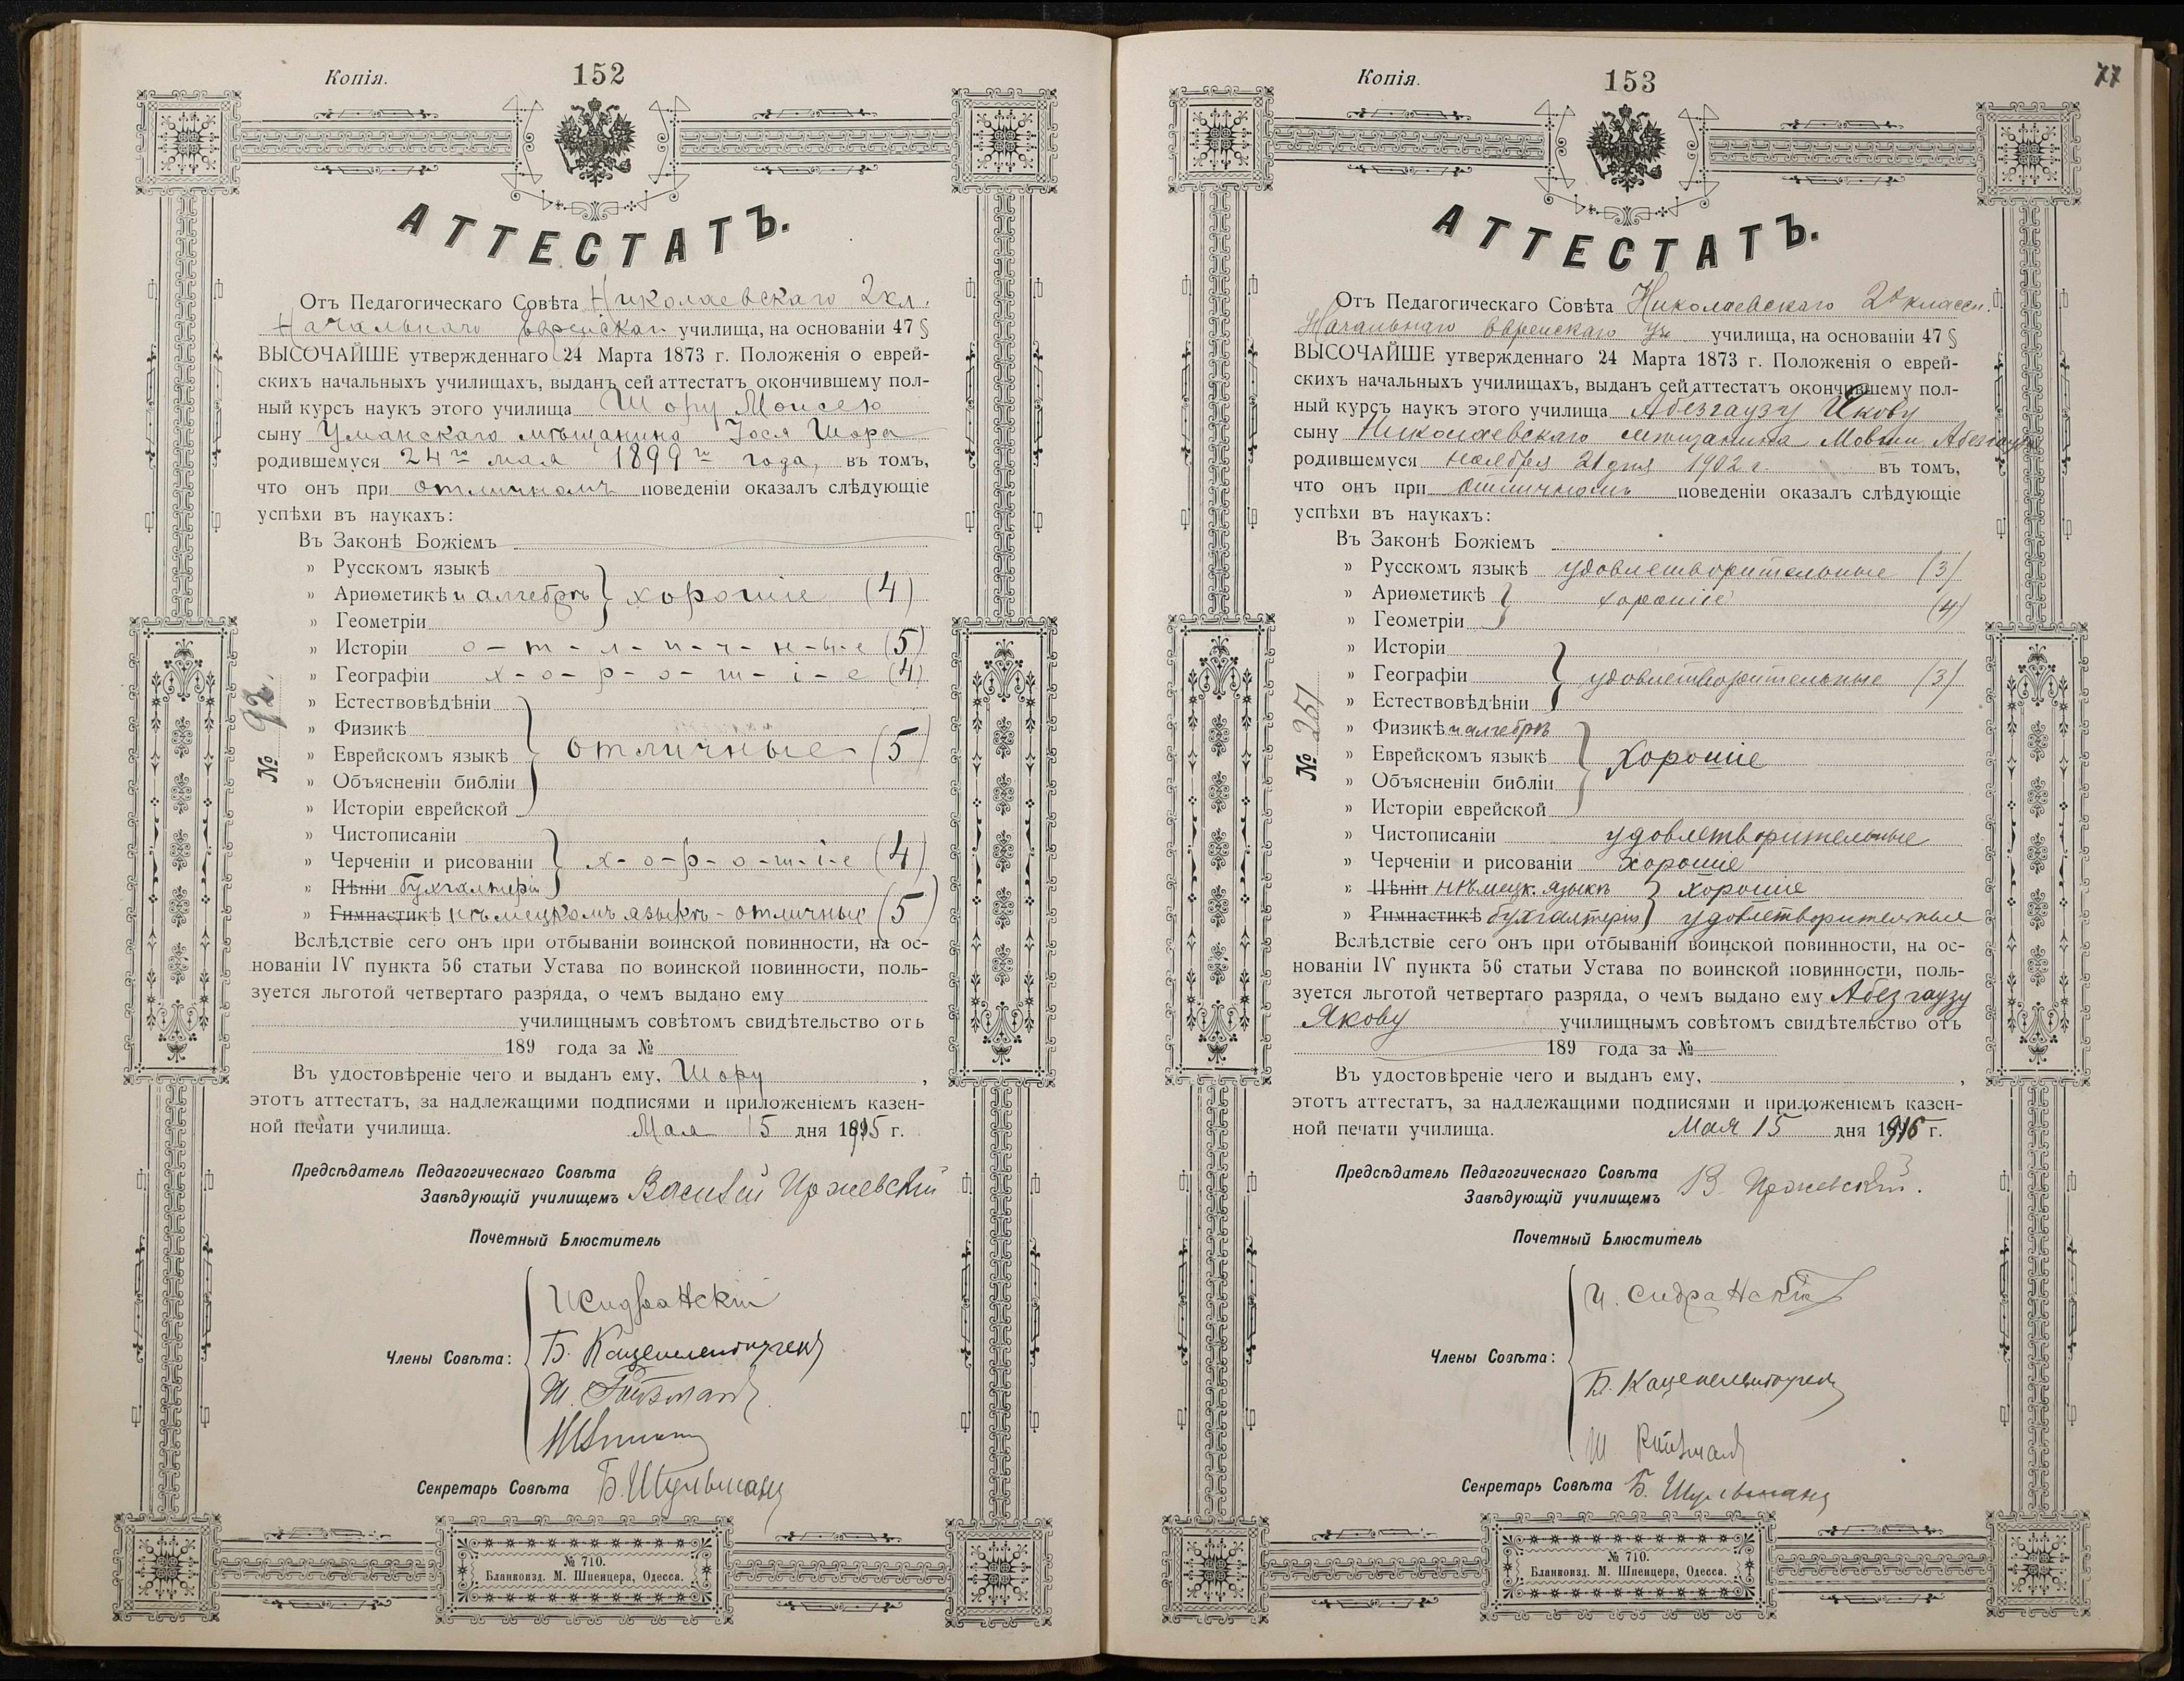 Копія.
152
АТТЕСТАТЪ.
Отъ Педагогическаго Совѣта Николаевскаго 2кл.
Начальнаго еврейскаго училища, на основаніи 47 §
ВЫСОЧАЙШЕ утвержденнаго 24 Марта 1873 г. Положенія о еврей-
скихъ начальныхъ училищахъ, выданъ сей аттестатъ окончившему пол-
ный курсъ наукъ этого училища Шору Моисею
сыну Уманскаго мѣщанина Іося Шора
родившемуся 24го мая 1899го года, въ томъ,
что онъ при отличномъ поведеніи оказалъ слѣдующіе
успѣхи въ наукахъ:
Въ Законѣ Божіемъ
» Русскомъ языкѣ
» Ариѳметикѣ и алгебрѣ } хорошіе (4)
» Геометріи
» Исторіи о-т-л-и-ч-н-ы-е (5)
» Географіи х-о-р-о-ш-і-е (4)
» Естествовѣдѣніи
» Физикѣ
» Еврейскомъ языкѣ } отличные (5)
» Объясненіи библіи
» Исторіи еврейской
» Чистописаніи
» Черченіи и рисованіи } х-о-р-о-ш-і-е (4)
» Пѣніи бухгалтеріи
» Гимнастикѣ нѣмецкомъ языкѣ - отличные (5)
№ 92.
Вслѣдствіе сего онъ при отбываніи воинской повинности, на ос-
нованіи IV пункта 56 статьи Устава по воинской повинности, поль-
зуется льготой четвертаго разряда, о чемъ выдано ему
училищнымъ совѣтомъ свидѣтельство отъ
189 года за №
Въ удостовѣреніе чего и выданъ ему, Шору,
этотъ аттестатъ, за надлежащими подписями и приложеніемъ казен-
ной печати училища. Мая 15 дня 1915 г.
Предсѣдатель Педагогическаго Совѣта
Завѣдующій училищемъ Василій Пржевскій
Почетный Блюститель
И Сидранскій
Члены Совѣта: Б. Каценеленбогенъ
Ш. Ройзманъ
Секретарь Совѣта Б. Шульманъ
№ 710.
Бланкоизд. М. Шпенцера, Одесса.
Копія.
153
77
АТТЕСТАТЪ.
Отъ Педагогическаго Совѣта Николаевскаго 2х классн.
Начальнаго еврейскаго уч училища, на основаніи 47 §
ВЫСОЧАЙШЕ утвержденнаго 24 Марта 1873 г. Положенія о еврей-
скихъ начальныхъ училищахъ, выданъ сей аттестатъ окончившему пол-
ный курсъ наукъ этого училища Абезгаузу Якову
сыну Николаевскаго мѣщанина Мовши Абезгауза
родившемуся ноября 21 дня 1902 г. въ томъ,
что онъ при отличномъ поведеніи оказалъ слѣдующіе
успѣхи въ наукахъ:
Въ Законѣ Божіемъ
» Русскомъ языкѣ удовлетворительные (3)
» Ариѳметикѣ } хорошіе (4)
» Геометріи
» Исторіи
» Географіи } удовлетворительные (3)
» Естествовѣдѣніи
» Физикѣ и алгебрѣ
» Еврейскомъ языкѣ } Хорошіе
» Объясненіи библіи
» Исторіи еврейской
» Чистописаніи удовлетворительные
» Черченіи и рисованіи хорошіе
» Пѣніи нѣмецк. языкѣ } хорошіе
» Гимнастикѣ бухгалтеріи } удовлетворительные
№ 251
Вслѣдствіе сего онъ при отбываніи воинской повинности, на ос-
нованіи IV пункта 56 статьи Устава по воинской повинности, поль-
зуется льготой четвертаго разряда, о чемъ выдано ему Абезгаузу
Якову училищнымъ совѣтомъ свидѣтельство отъ
189 года за №
Въ удостовѣреніе чего и выданъ ему,
этотъ аттестатъ, за надлежащими подписями и приложеніемъ казен-
ной печати училища. Мая 15 дня 1916 г.
Предсѣдатель Педагогическаго Совѣта
Завѣдующій училищемъ В. Пржевскій.
Почетный Блюститель
И. Сидранскій
Члены Совѣта:
Б. Каценеленбогенъ
Ш Ройзманъ
Секретарь Совѣта Б. Шульманъ
№ 710.
Бланкоизд. М. Шпенцера, Одесса.